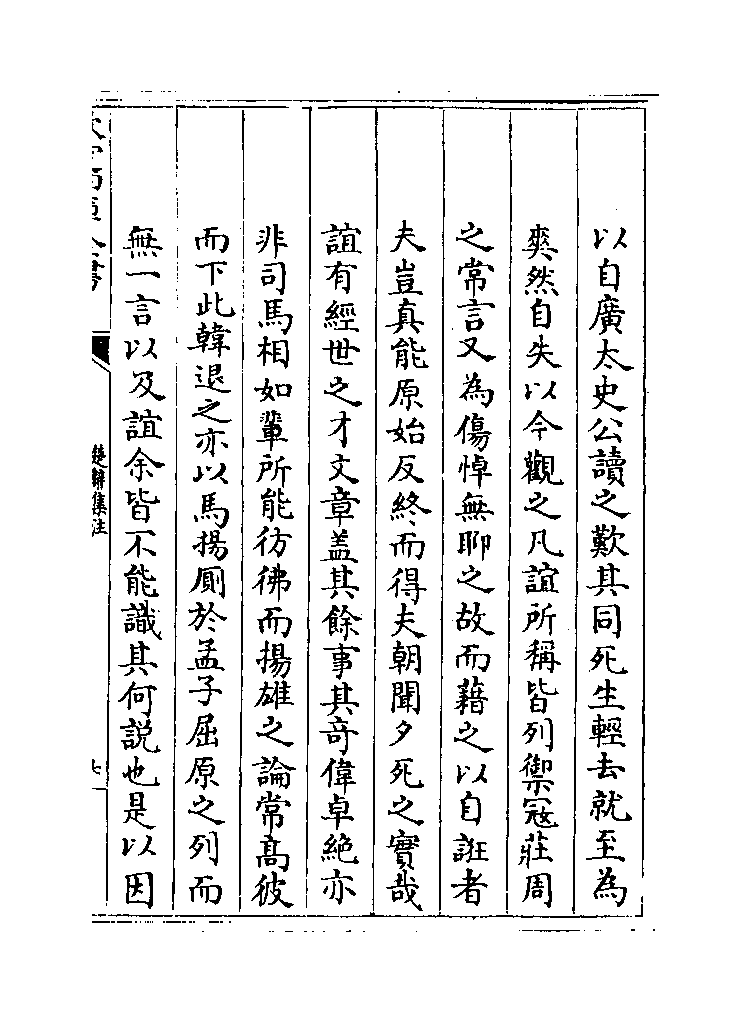 以自廣太史公讀之歎其同死生輕去就至為
爽然自失以今觀之凡誼所稱皆列禦冦莊周
之常言又為傷悼無聊之故而藉之以自誑者
夫豈真能原始反終而得夫朝聞夕死之實哉
誼有經世之才文章盖其餘事其竒偉卓絶亦
非司馬相如輩所能彷彿而揚雄之論常髙彼
而下此韓退之亦以馬揚厠於孟子屈原之列而
無一言以及誼余皆不能識其何説也是以因
楚辭集注